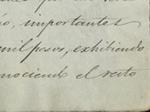 io, importantes
mil pesos, exhibiendo
nociendo el resto